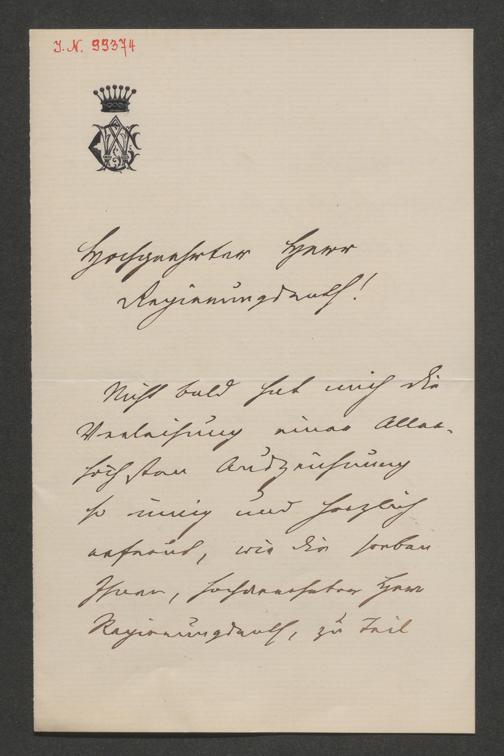 I.N. 99374
Hochgeehrter Herr
Regierungsrath!
Nicht bald hat mich die
Verleihung einer Aller-
höchsten Auszeichnung
so innig und herzlich
erfreut, wie die soeben
Ihnen, hochgeehrter Herr
Regierungsrath, zu Teil